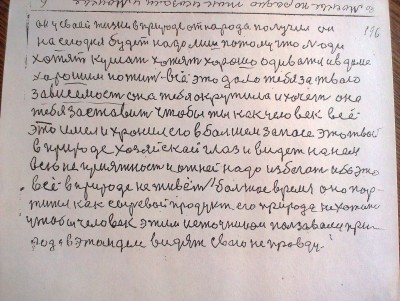 он у своей жизни в природе от народа получил он
на сегодня будет надо лиш потому что люди
хотят кушат хотят хорошо одиватци в доме
хорошим пожит. всё это дало тебя за твого
зависемост она тебя окрутила и хочет она
тебя заставит чтобы ты как человек всё
это имел и хронил его в болшем запасе это твой
в природе хозяйский глаз и видет на нем
весь не приятност и от ней надо избегат ибо это
всё в природе не живёт болшое время оно пор-
тится как сыревой продукт его природа не хотит
чтобы человек этим источником ползавался при-
рода в этом деле видят свого не правду.
116